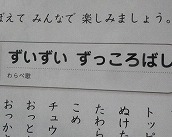 ぼえて みんなで 楽しみましょう。
ずいずい ずっころばし
わらべ歌
トッピ
ぬけた
たわら
こめ
チュウ
おっと
おっか